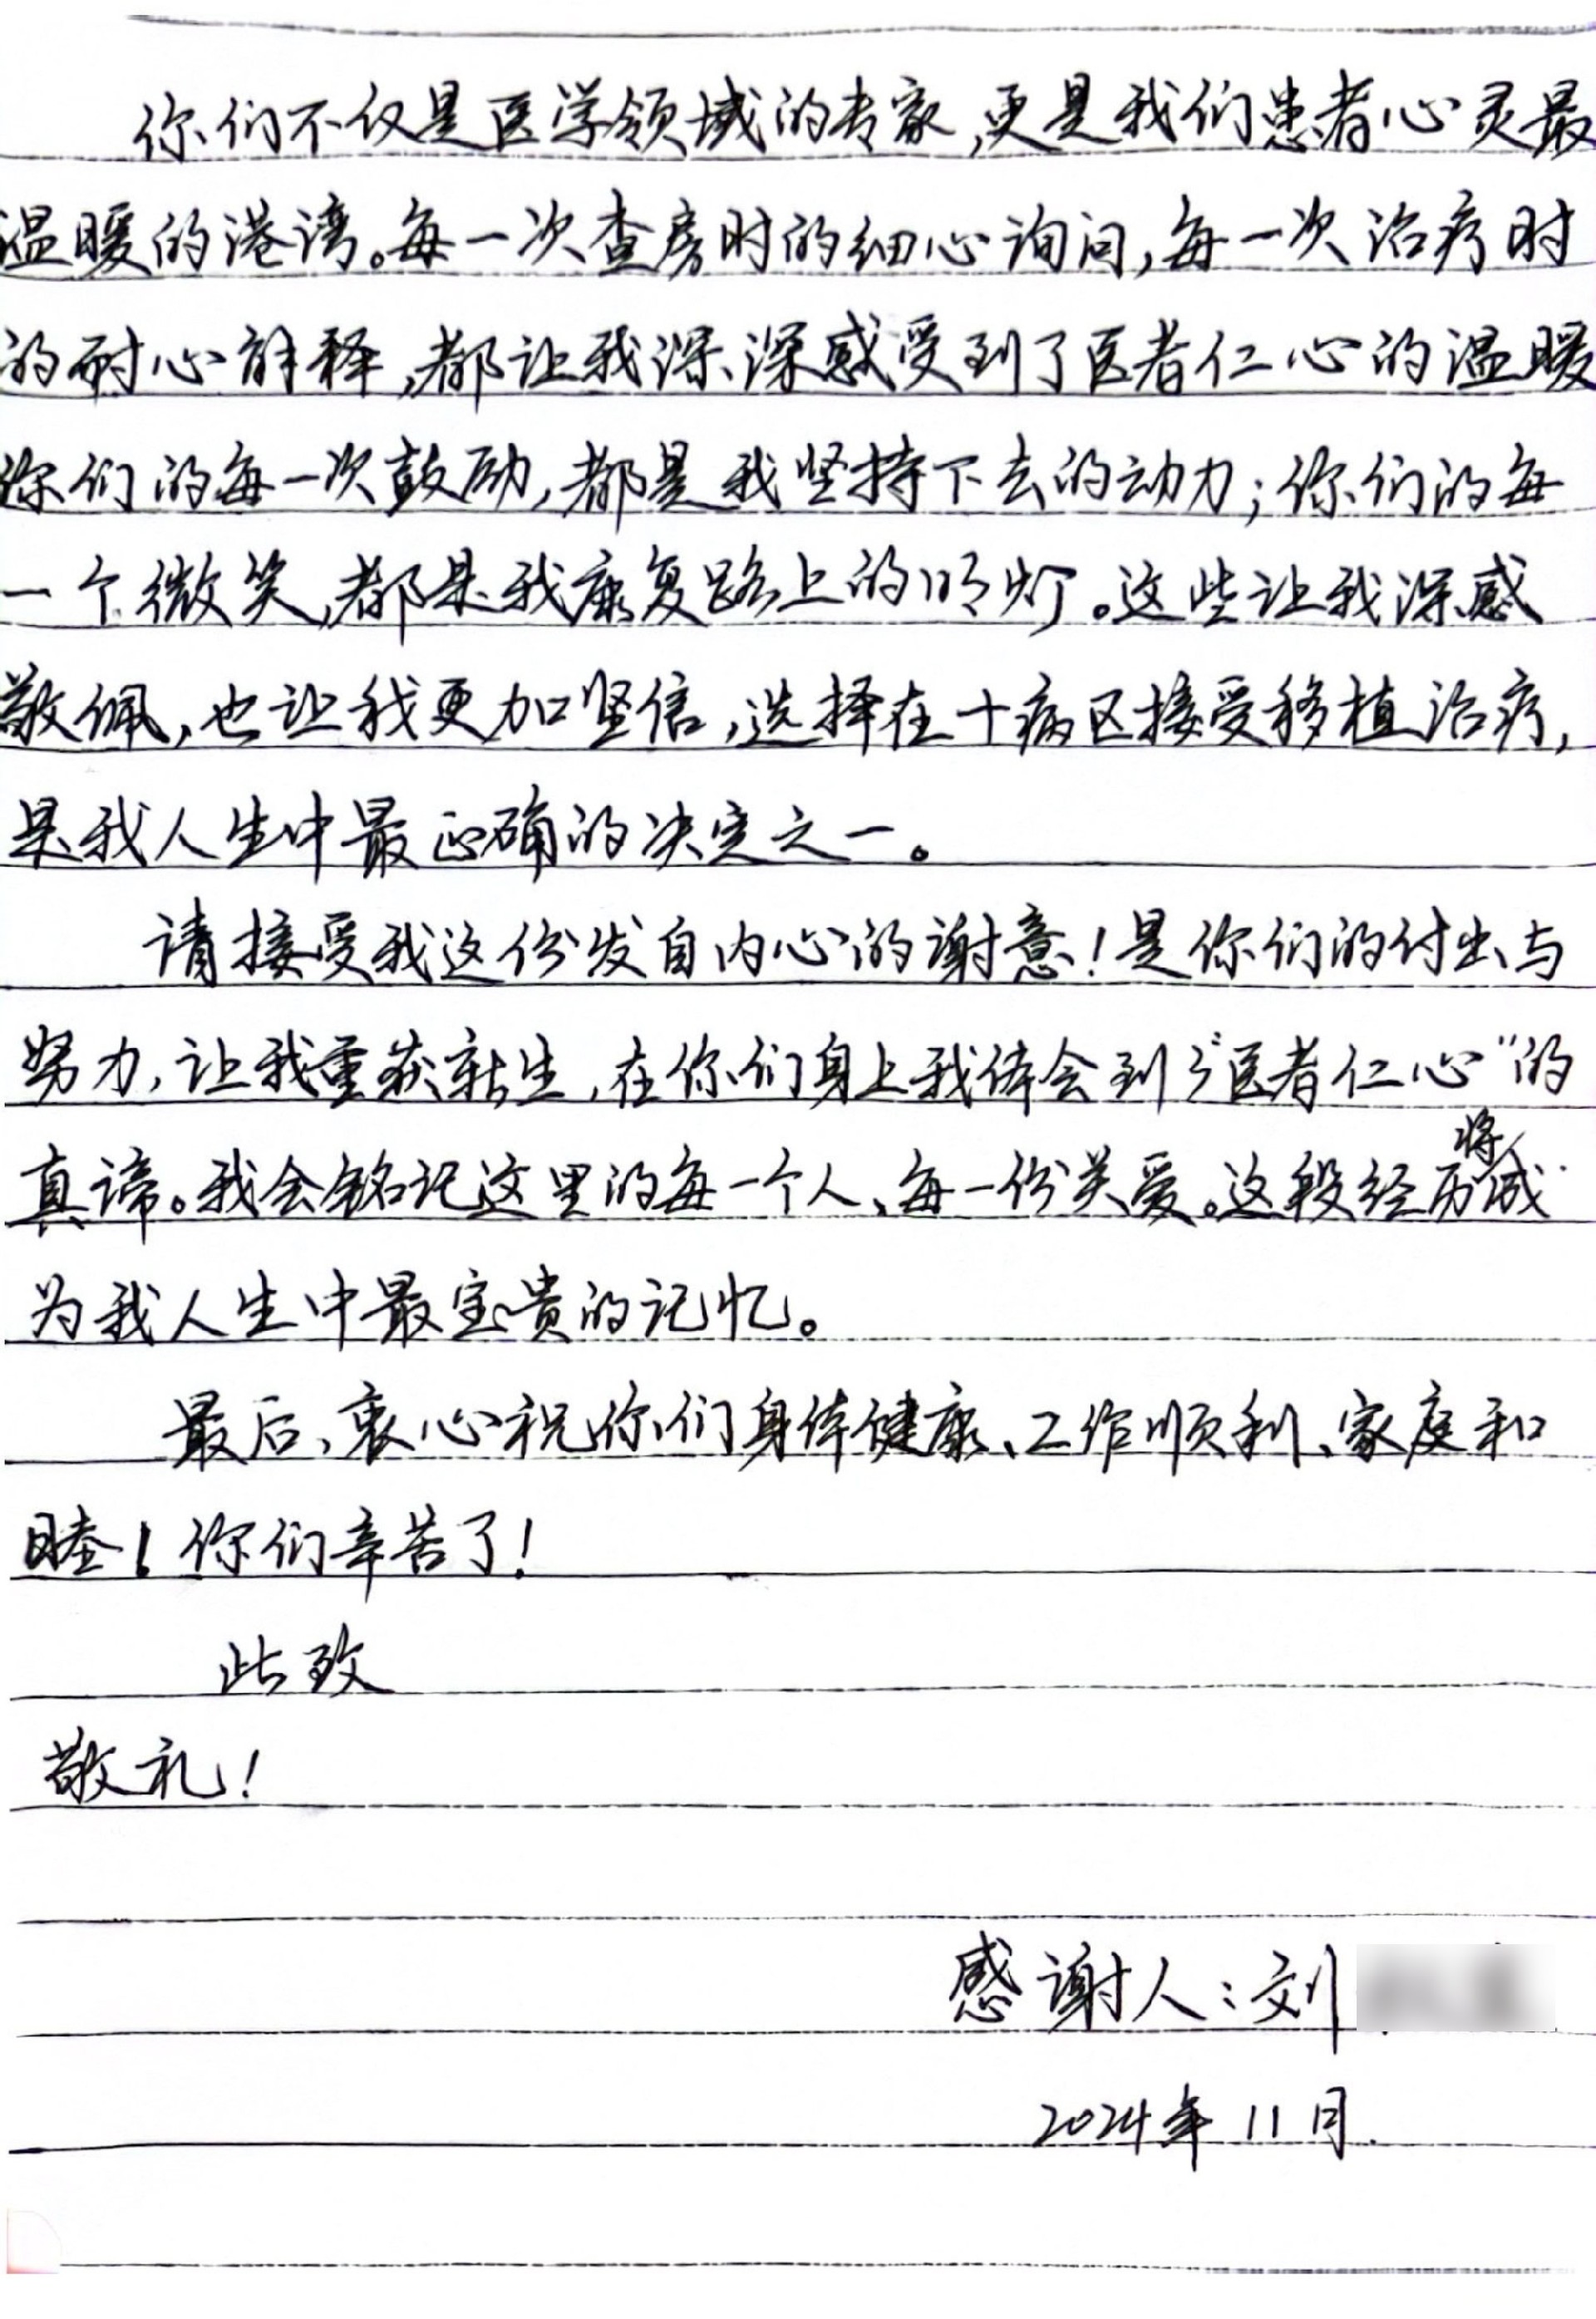 你们不仅是医学领域的专家,更是我们患者心灵最
温暖的港湾。每一次查房时的细心询问,每一次治疗时
的耐心解释,都让我深深感受到了医者仁心的温暖
你们的每一次鼓励,都是我坚持下去的动力;你们的每
一个微笑,都是我康复路上的明灯。这些让我深感
敬佩,也让我更加坚信,选择在十病区接受移植治疗,
是我人生中最正确的决定之一。
请接受我这份发自内心的谢意!是你们的付出与
努力,让我重获新生,在你们身上我体会到了“医者仁心”的
真谛。我会铭记这里的每一个人、每一份关爱。这段经历将成
为我人生中最宝贵的记忆。
最后、衷心祝你们身体健康、工作顺利、家庭和
睦!你们辛苦了!
此致
敬礼!
感谢人:刘
2024年11月.